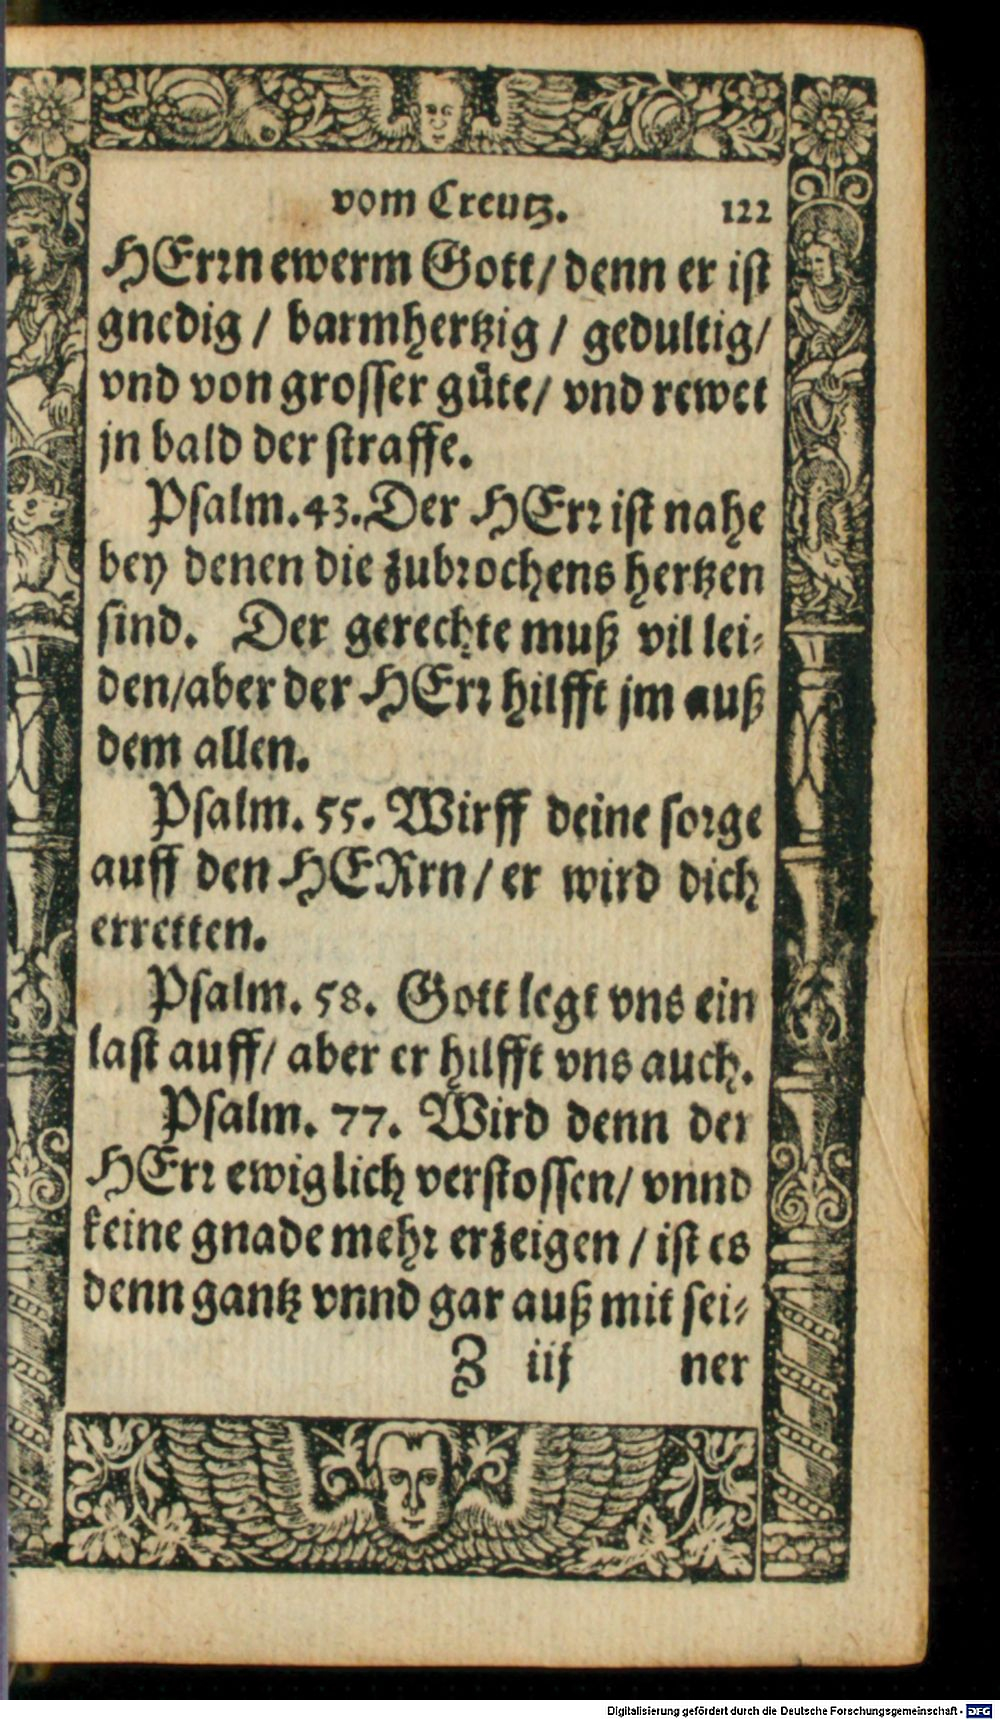 vom Creutz. 122
HErrn ewerm Gott/ denn er ist
gnedig / barmhertzig / gedultig/
vnd von grosser güte/ vnd rewet
jn bald der straffe.
Psalm. 43. Der HErr ist nahe
bey denen die zubrochens hertzen
sind. Der gerechte muß vil lei-
den/aber der HErr hilfft jm auß
dem allen.
Psalm. 55. Wirff deine sorge
auff den HERrn/ er wird dich
erretten.
Psalm. 58. Gott legt vns ein
last auff/ aber er hilfft vns auch.
Psalm. 77. Wird denn der
HErr ewiglich verstossen/ vnnd
keine gnade mehr erzeigen / ist es
denn gantz vnnd gar auß mit sei-
Z iij ner
Digitalisierung gefördert durch die Deutsche Forschungsgemeinschaft - DFG